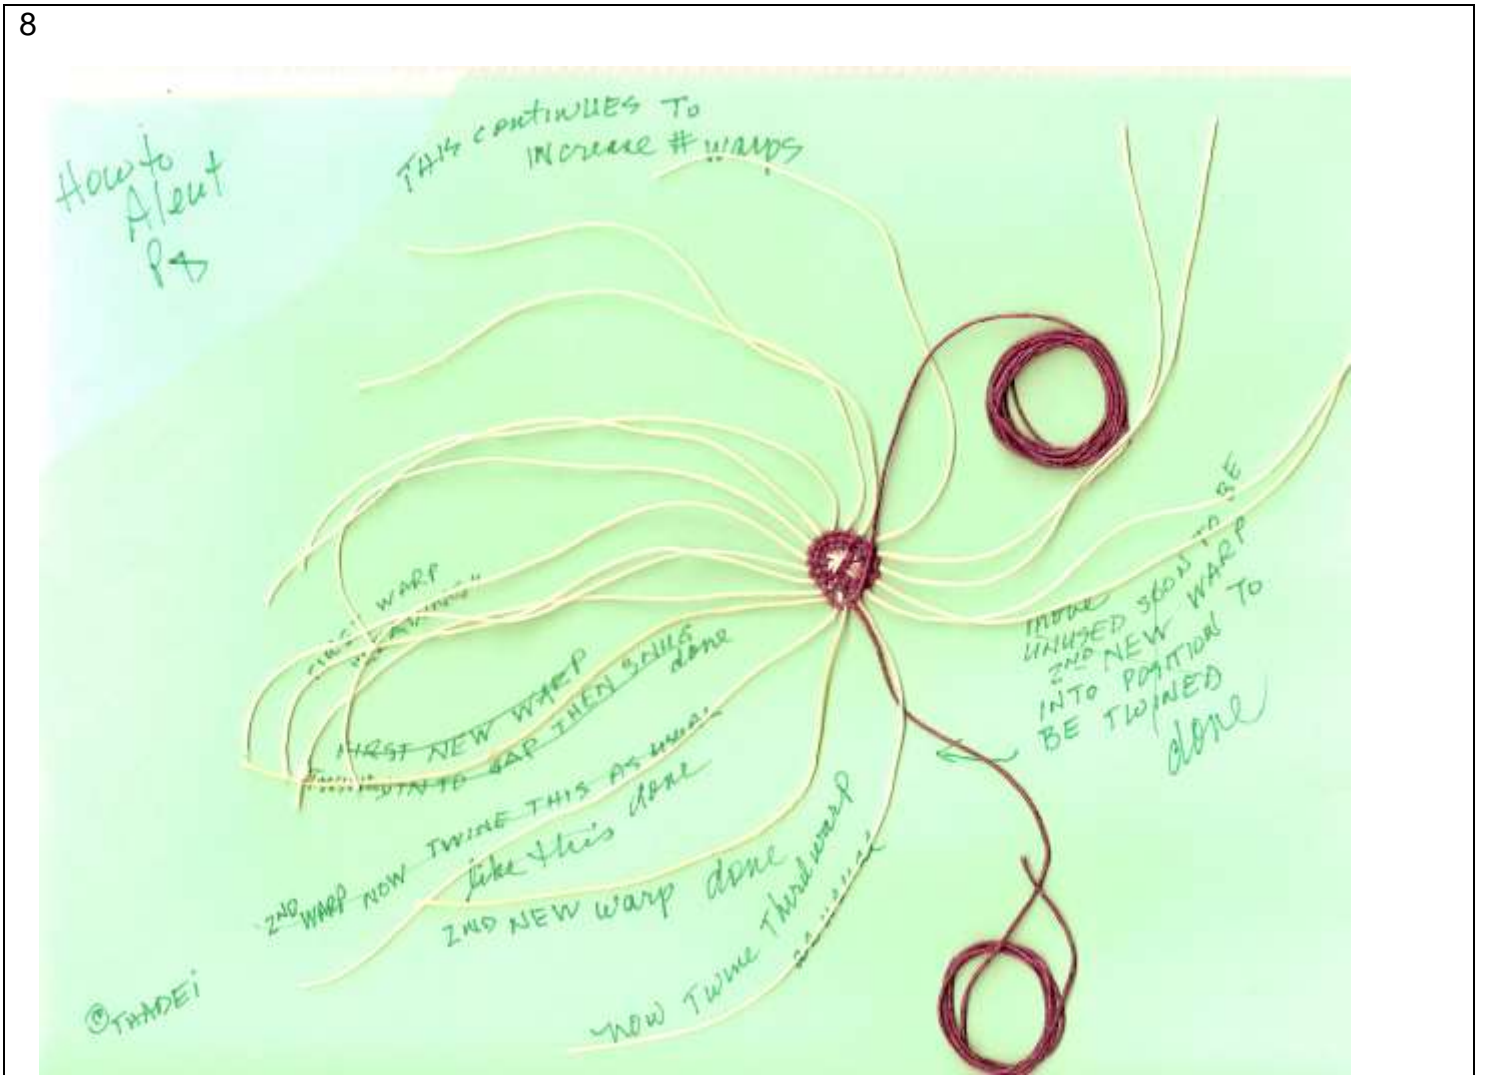 8
How to
Aleut
P8
THIS CONTINUES TO
INCREASE # warps
FIRST WARP
FIRST NEW WARP
INTO GAP THEN SNUG
done
2ND WARP NOW TWINE THIS AS usual
like this done
2ND NEW warp done
NOW TWINE Third warp
move
UNUSED SPOON TO BE
2ND NEW WARP
INTO POSITION TO
BE TWINED
done
©THADEI